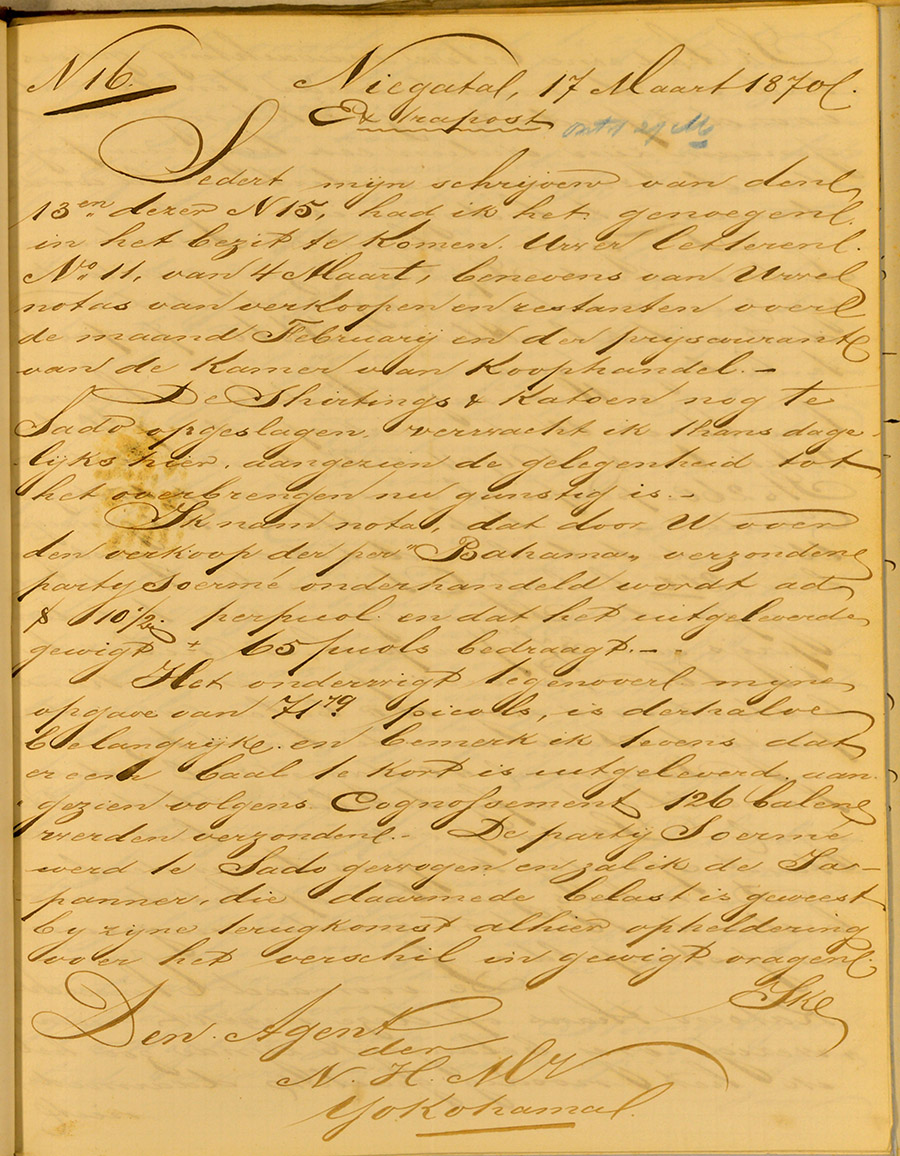 N 16. Niegata, 17 Maart 1870.
Extrapost
ontv 27 M
Sedert mijn schrijven van den
13en dezer N 15, had ik het genoegen
in het bezit te komen Uwer letteren
No 11, van 4 Maart, benevens van Uwe
notas van verkoopen en restanten over
de maand Februarij en der pryscourant
van de Kamer van Koophandel. —
De Shirtings & Katoen nog te
Sado opgeslagen, verwacht ik thans dage-
lijks hier, aangezien de gelegenheid tot
het overbrengen nu gunstig is. —
Ik nam nota, dat door U over
den verkoop der per "Bahama" verzonden
party Soermé onderhandeld wordt ad
$ 10 1/2 per picol en dat het uitgeleverde
gewigt ± 65 piculs bedraagt. — -
Het onderwigt tegenover myne
opgave van 71 79 picols, is derhalve
belangrijk en bemerk ik tevens dat
er een baal te kort is uitgeleverd, aan-
gezien volgens Cognossement 126 balen
werden verzonden. - De party Soerme
werd te Sado gewogen en zal ik de Ja-
panner, die daarmede belast is geweest
by zyne terugkomst alhier opheldering
over het verschil in gewigt vragen.
Ik
Den Agent
der
N. H. My
Yokohama.